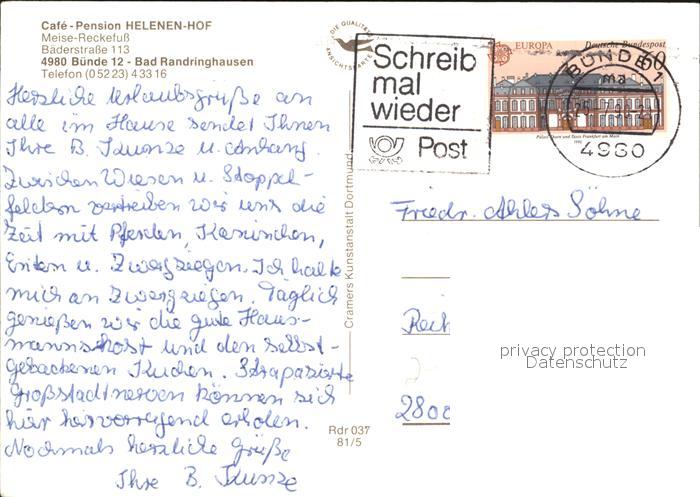 Café - Pension HELENEN-HOF
Meise-Reckefuß
Bäderstraße 113
4980 Bünde 12 - Bad Randringhausen
Telefon (0 52 23) 4 33 16
Herzliche Urlaubsgrüße an
alle im Hause sendet Ihnen
Ihre B. Kunze u. Anhang
Zwischen Wiesen u. Stoppel-
feldern vertreiben wir uns die
Zeit mit Pferden, Kaninchen,
Enten u. Zwergziegen. Ich halte
mich an Zwergziegen. Täglich
genießen wir die gute Haus-
mannskost und den selbst-
gebackenen Kuchen. Strapazierte
Großstadtnerven können sich
hier hervorragend erholen.
Nochmals herzliche Grüße
Ihre B. Kunze
DIE QUALITÄTS
ANSICHTSKARTE
Cramers Kunstanstalt Dortmund
Rdr 037
81/5
Schreib
mal
wieder
Post
EUROPA
Deutsche Bundespost
60
Palais Thurn und Taxis Frankfurt am Main
1990
BÜNDE 1
ma
4980
Friedr. Ahlers Söhne
2800
privacy protection
Datenschutz